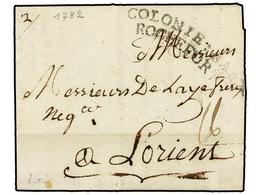 2 1782
COLONIES PAR
ROCHEFORT
Messieurs
Messieurs De Laye freres
Neg.ts
16
a Lorient